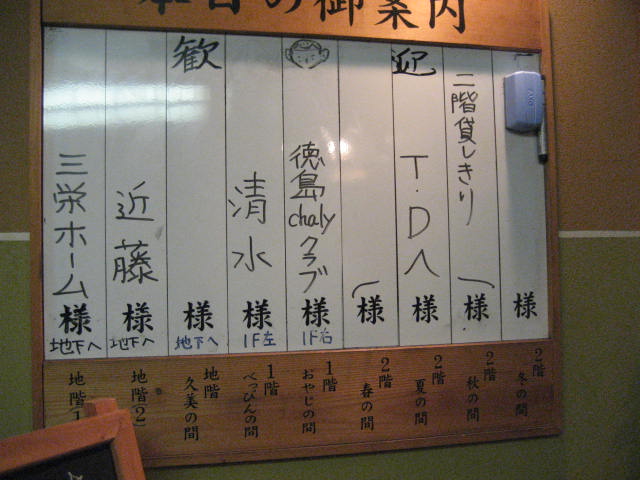 本日の御案内
歓迎
二階貸しきり
T.D入
様
様
様
様
徳島chalyクラブ
様
1F右
清水
様
1F左
様
地下へ
近藤
様
地下へ
三栄ホーム
様
地下へ
2階
冬の間
2階
秋の間
2階
夏の間
2階
春の間
1階
おやじの間
1階
べっぴんの間
地階
久美の間
地階2
地階1